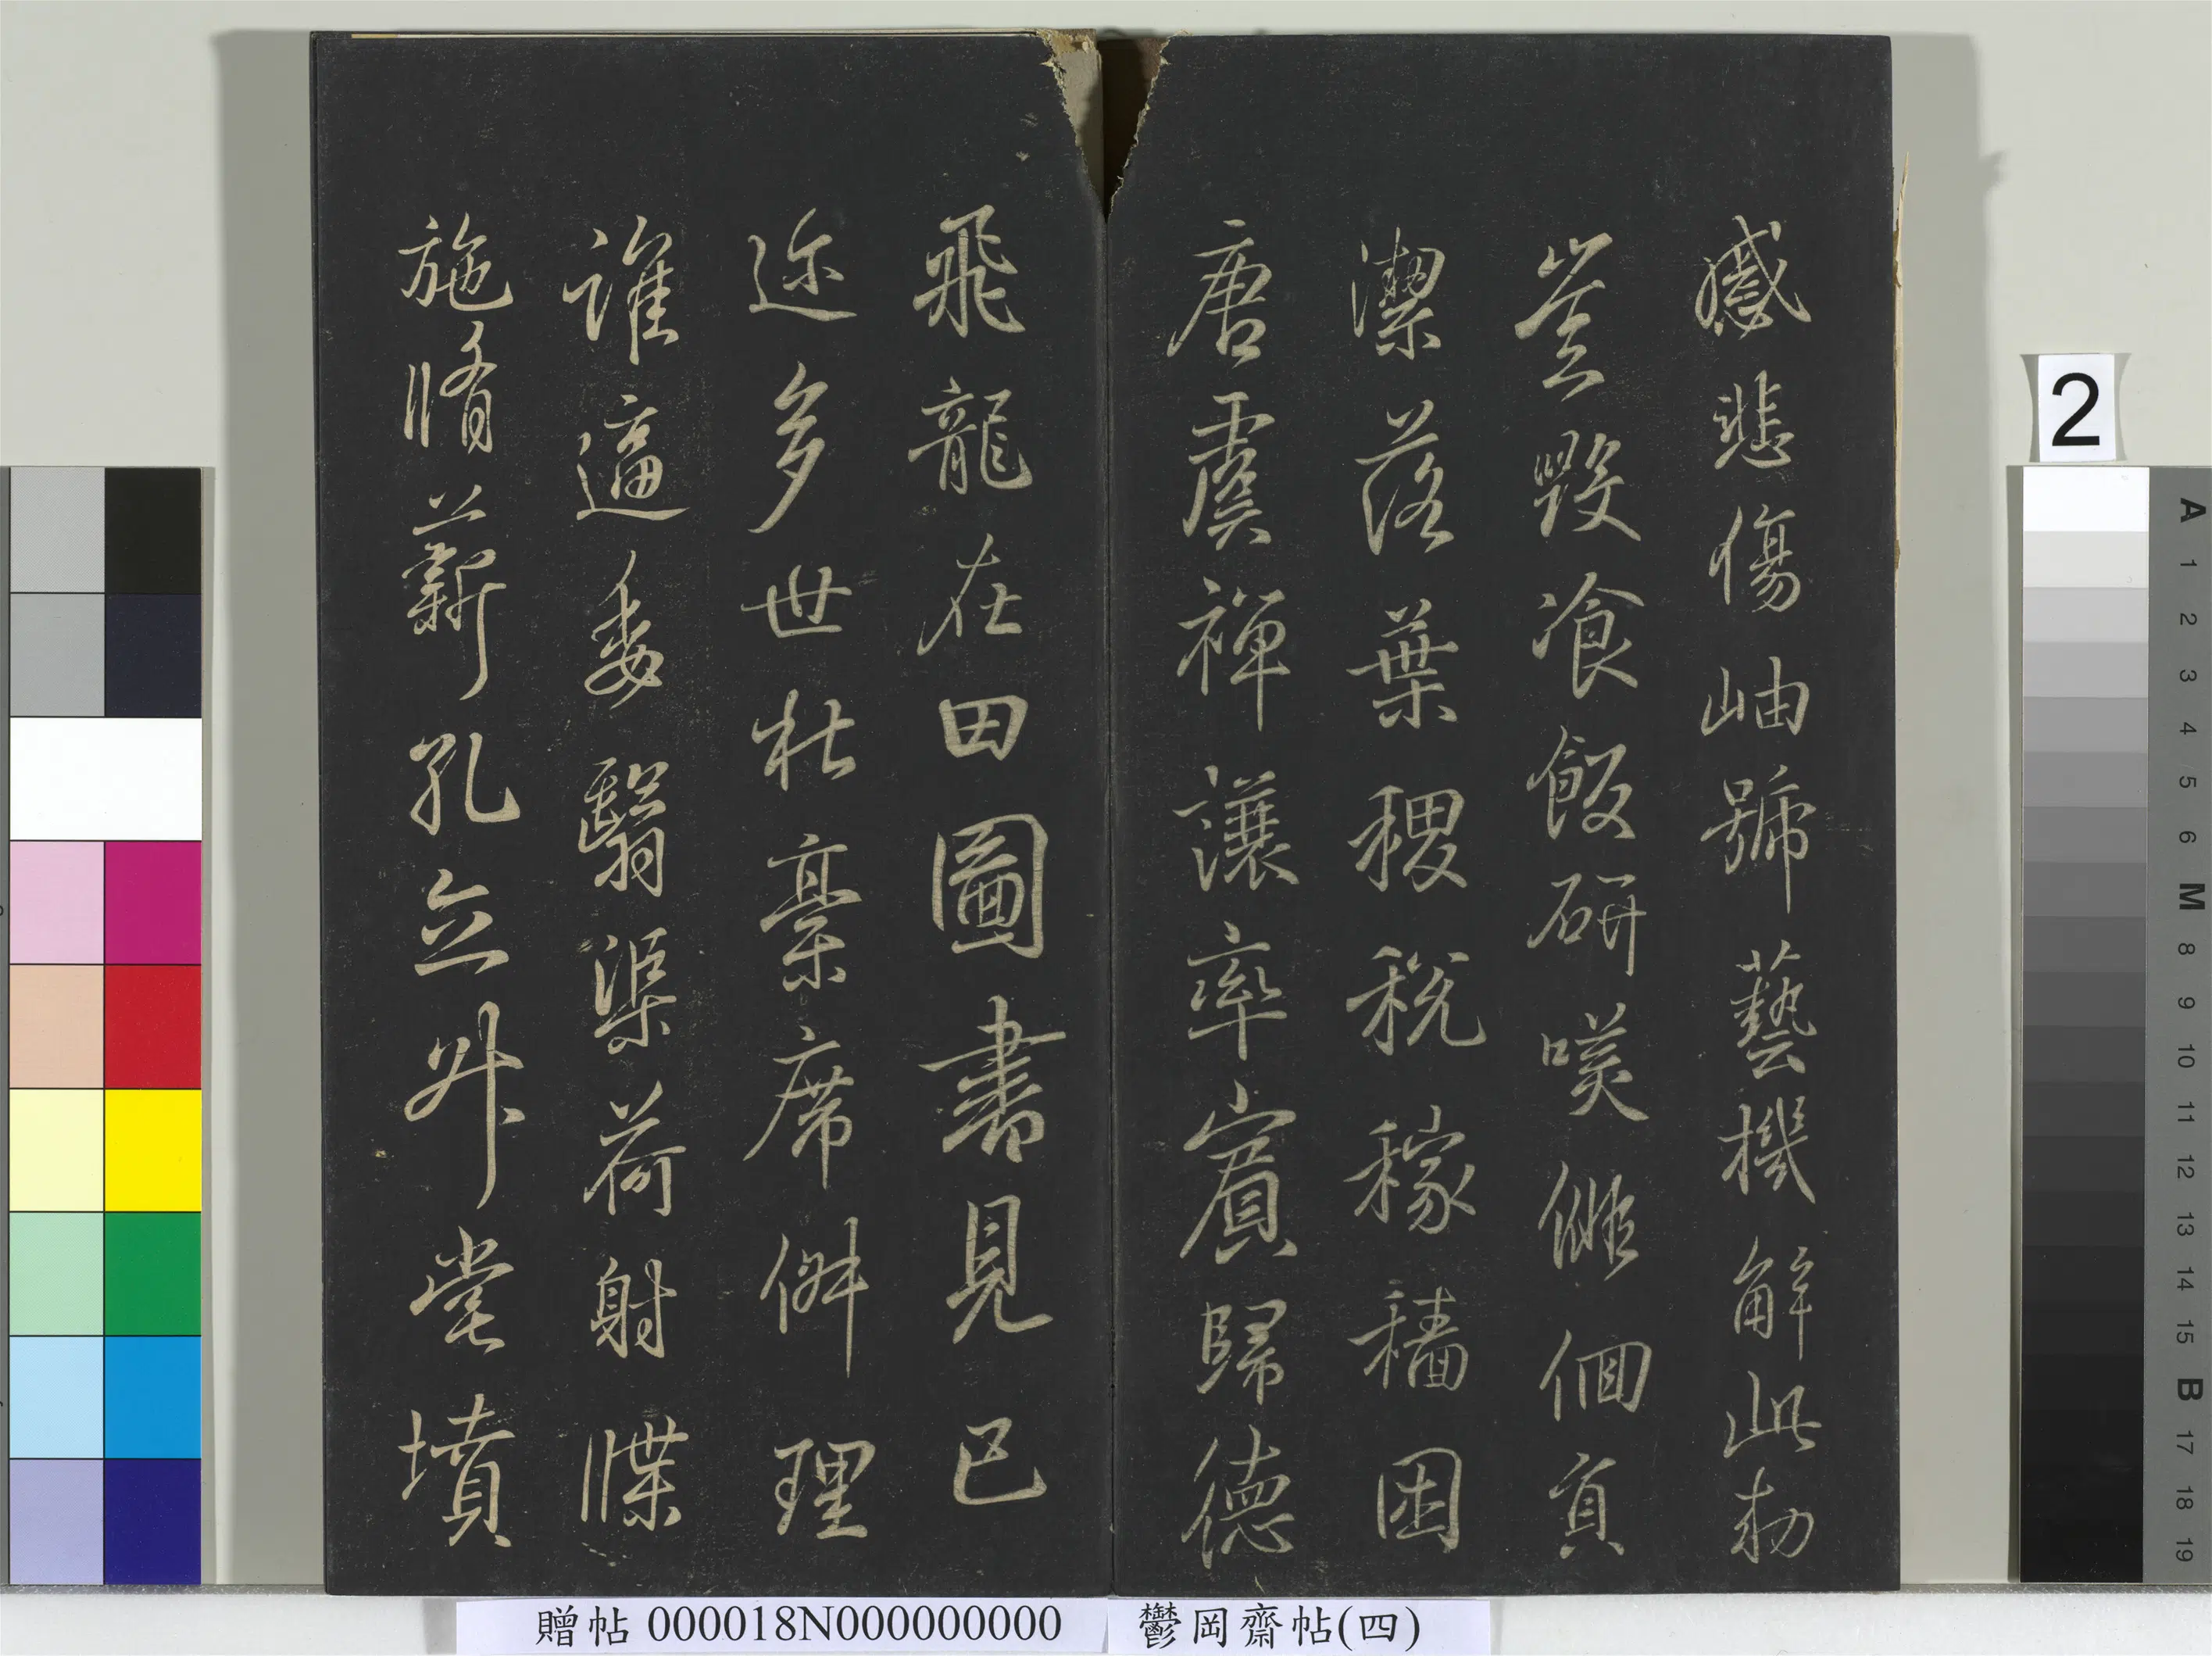 感悲傷岫號藝機解此勑
豈毀飡飯研嘆個負
潔落葉稷稅稼穡困
唐虞禪讓率賓歸德
飛龍在田圖書見已
迩多世壯稾席併理
誰逼委翳渠荷射牒
施脩薪孔立升堂墳
贈帖 000018N000000000
鬱岡齋帖(四)
2
A 1 2 3 4 5 6 M 8 9 10 11 12 13 14 15 B 17 18 19